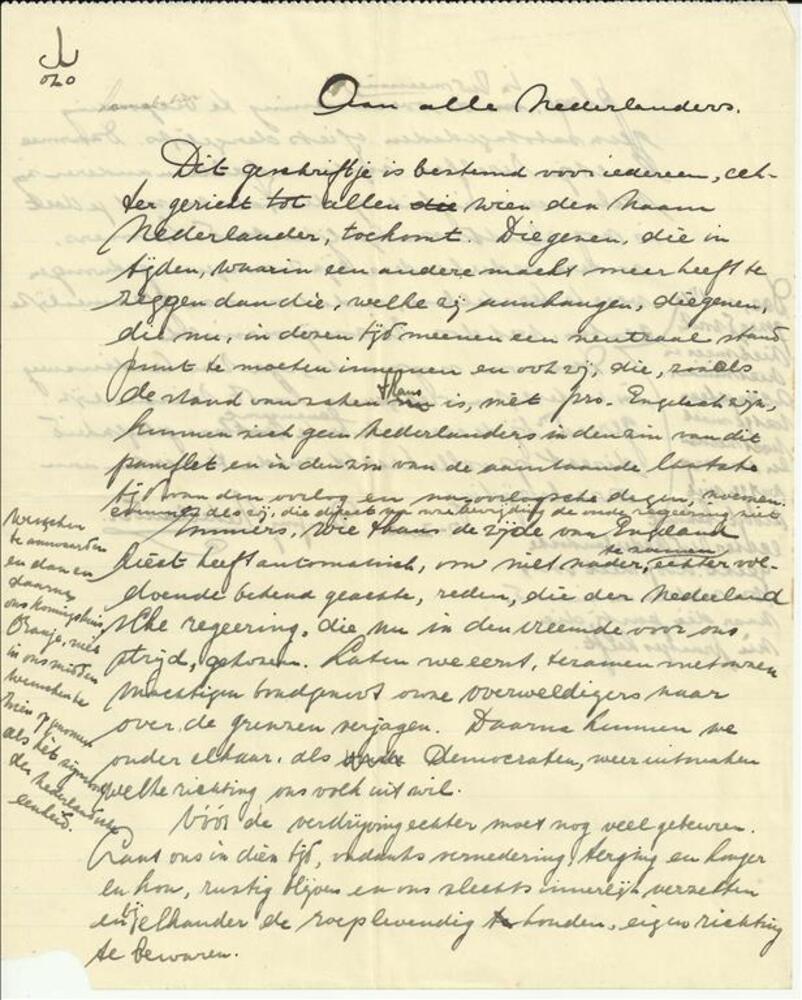 Aan alle Nederlanders.
Dit geschriftje is bestemd voor iedereen, ech-
ter gericht tot allen die wien den naam
Nederlander, toekomt. Diegenen, die in
tijden, waarin een andere macht meer heeft te
zeggen dan die, welke zij aanhangen, diegenen,
die nu, in dezen tijd meenen een neutraal stand
punt te moeten innemen en ook zij, die, zooals
de stand van zaken nu thans is, niet pro-Engelsch zijn,
kunnen zich geen Nederlanders in den zin van dit
pamflet en in den zin van de aanstaande laatste
tijd van den oorlog en na-oorlogsche dagen, noemen.
evenmin als zij, die direct na onze bevrijding de oude regeering niet
wenschen
te aanvaarden
en dan en
daarna
ons koningshuis,
Oranje, niet
in ons midden
wenschen te
zien opgenomen
als hèt symbool
der Nederlandsche
eenheid.
Immers, wie thans de zijde van Engeland
kiest heeft automatisch, om niet nader te noemen, echter vol-
doende bekend geachte, reden, die der Nederland
sche regeering, die nu in den vreemde voor ons
strijd, gekozen. Laten we eerst, te zamen met onzen
machtigen bondgenoot onze overweldigers naar
over de grenzen verjagen. Daarna kunnen we
onder elkaar, als Democraten, weer uitmaken
welke richting ons volk uit wil.
Vóór de verdrijving echter moet nog veel gebeuren.
Laat ons in dien tijd, ondanks vernedering, terging en honger
en kou, rustig blijven en ons slechts innerlijk verzetten
en bij elkander de hoop levendig te houden, eigen richting
te bewaren.